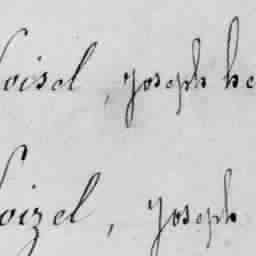 oisel, Joseph he
oizel, Joseph